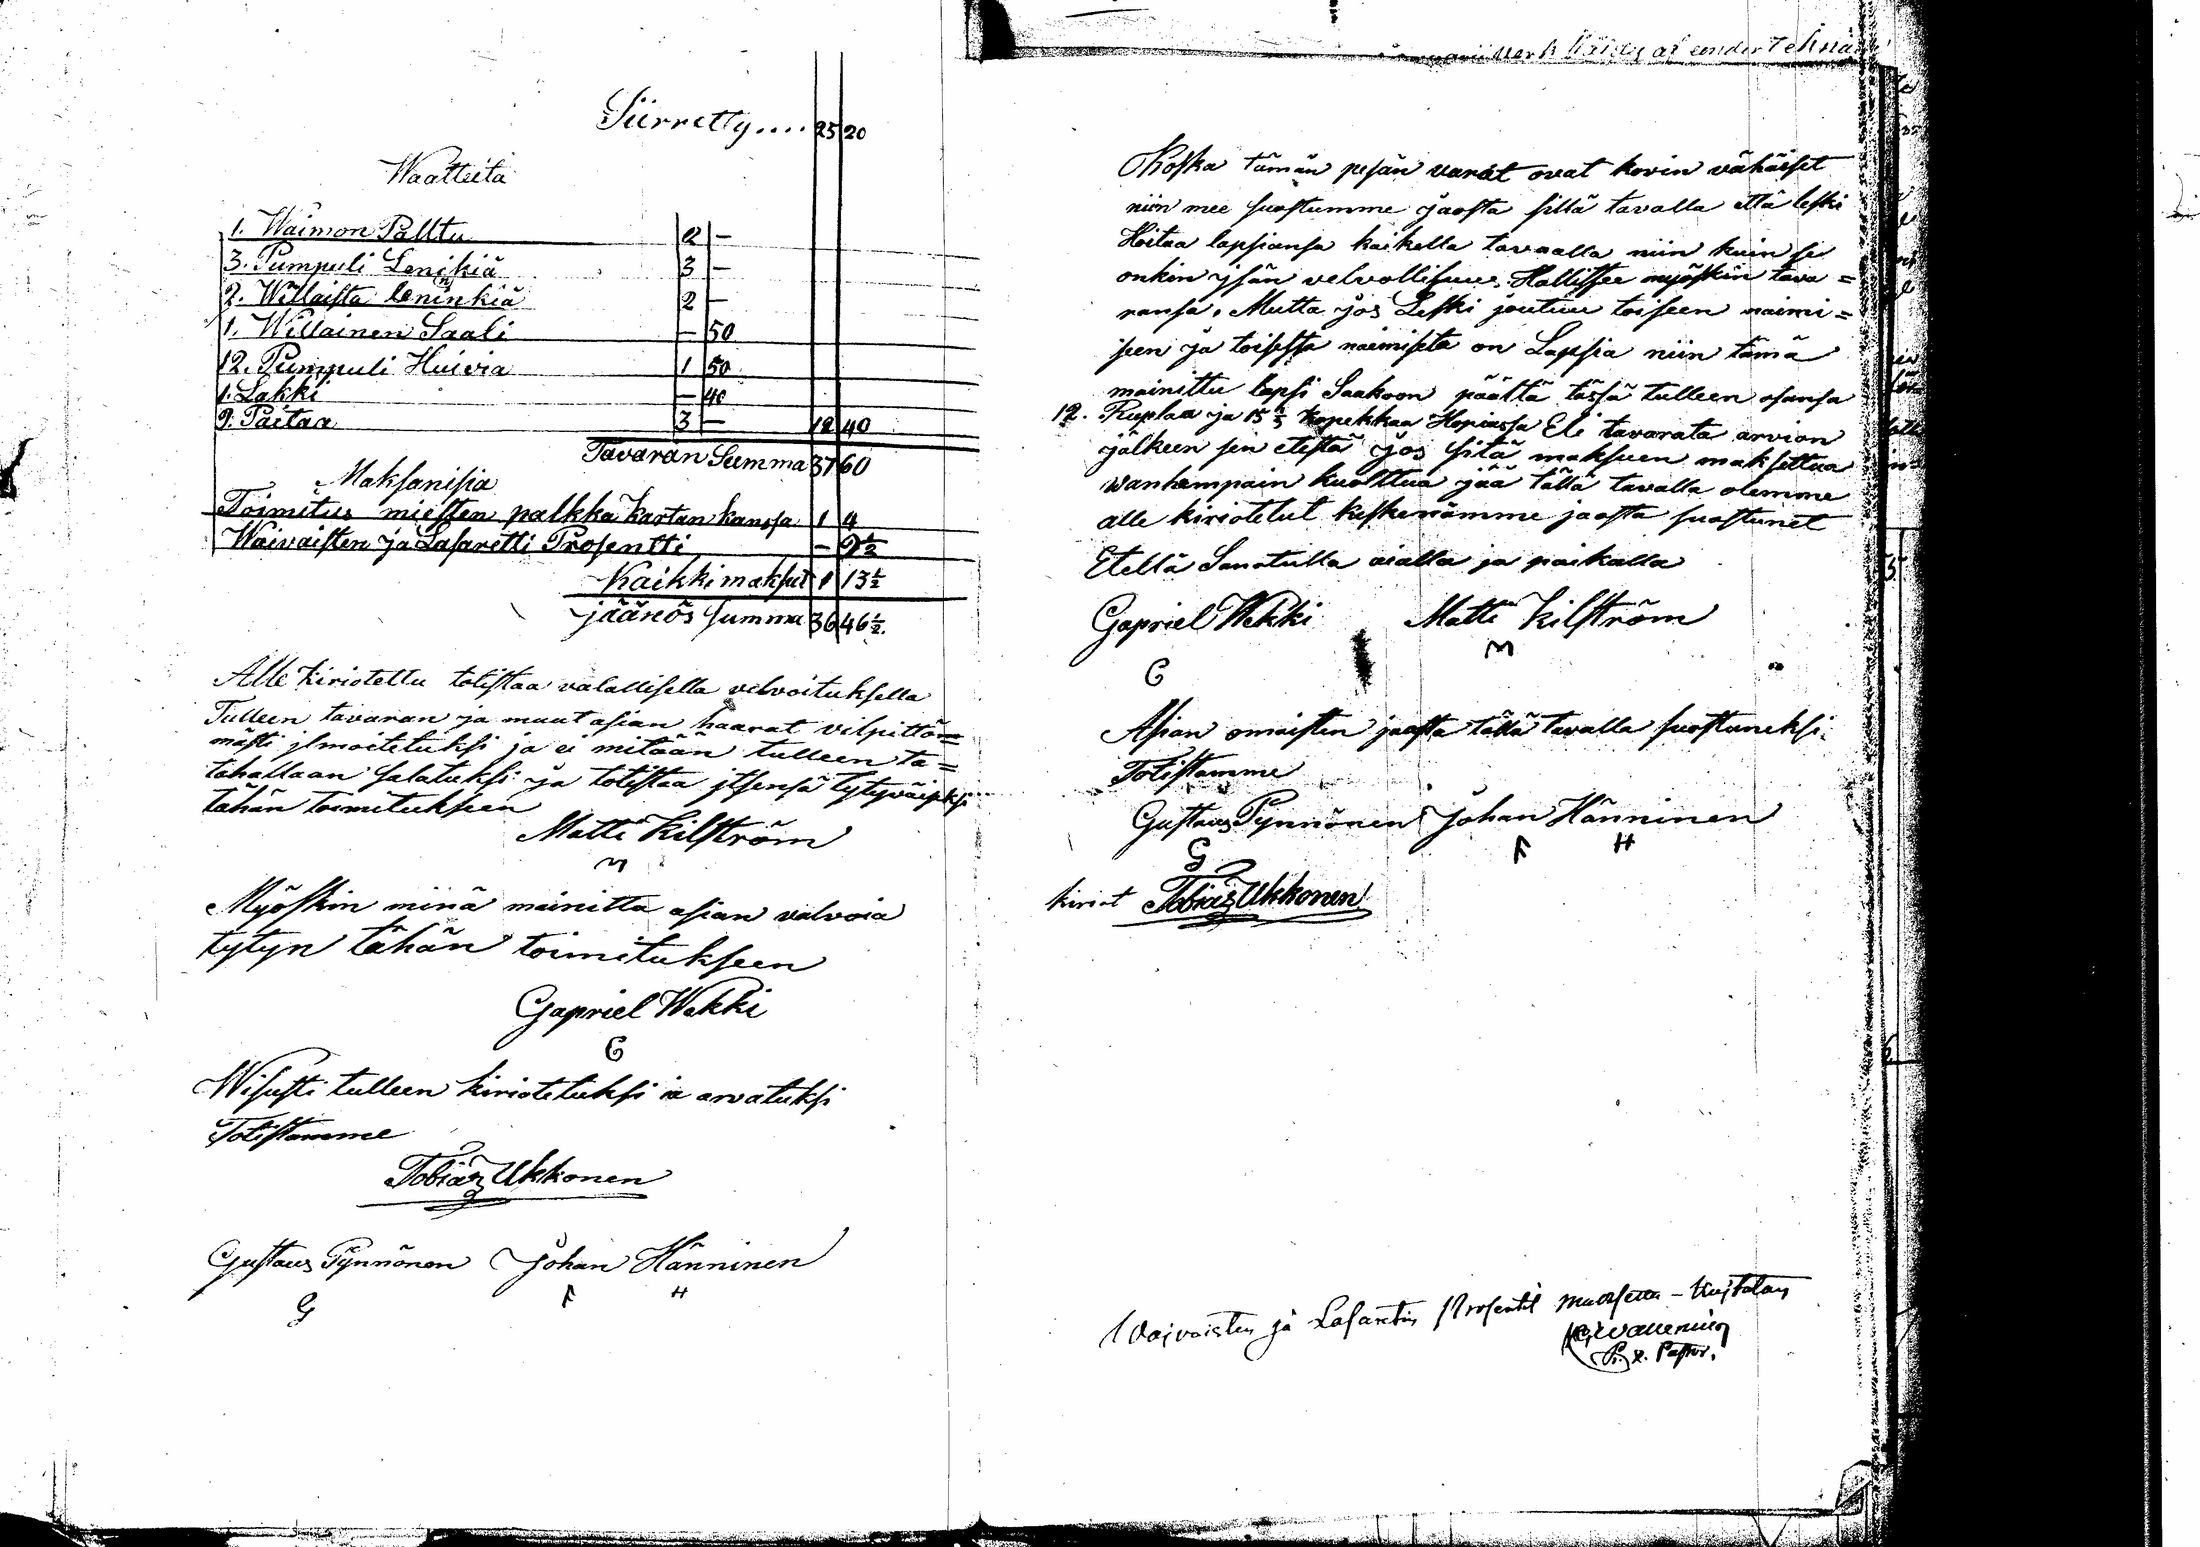 Siirretty.... 25 20
Waatteita
1. Waimon Palttu 2 —
3. Pumpuli Leninkiä 3 —
2. Willaista leninkiä 2 —
1. Willainen Saali — 50
12. Pumpuli Huivia 1 50
1. Lakki — 40
9. Paitaa 3 — 12 40
Tavaran Summa 37 60
Maksanisia
Toimitus miesten palkka kartan kanssa 1 4
Waivaisten ja Lasaretti Prosentti — 9½
Kaikki maksut 1 13½
jäänös summa 36 46½.
Alle kiriotettu totistaa valallisella velvoituksella
Tulleen tavaran ja muut asian haarat vilpittöm=
mästi jlmoitetuksi ja ei mitään tulleen ta=
tahallaan salatuksi ja totistaa jtsensä tytyväiseksi
tähän toimitukseen
Matti Kilström
M
Myöskin minä mainitta asian valvoia
tytyn tähän toimitukseen
Gapriel Wekki
G
Wisusti tulleen kiriotetuksi ia arvatuksi
Totistamme
Tobias Ukkonen
Gustaus Pynnönen Johan Hänninen
G F H
Koska tämän pesän varat ovat kovin vähäiset
niin mee suostumme jaosta sillä tavalla että leski
Hoitaa lapsiansa kaikella tavaalla niin kuin se
onkin jsän velvollisuus Hallitsee myöskin tava=
ransa, Mutta jos Leski joutuu toiseen naimi=
seen ja toisesta naimiseta on Lapsia niin tämä
mainittu lapsi Saakoon päältä tässä tulleen osansa
12. Ruplaa ja 15½ kopekkaa Hopiassa Eli tavarata arvion
jälkeen sen etestä jos sitä maksuen maksettua
wanhempain kuolttua jää tällä tavalla olemme
alle kiriotetut keskenämme jaosta suostunet
Etellä Sanotulla aialla ja paikalla
Gapriel Wekki Matti Kilström
G M
Asian omaisten jaosta tällä tavalla suostuneksi
Totistamme
Gustaus Pynnönen Johan Hänninen
G F H
kiriot Tobias Ukkonen
Waivaisten ja Lasaretin Prosentit maksettu —
Pastor.